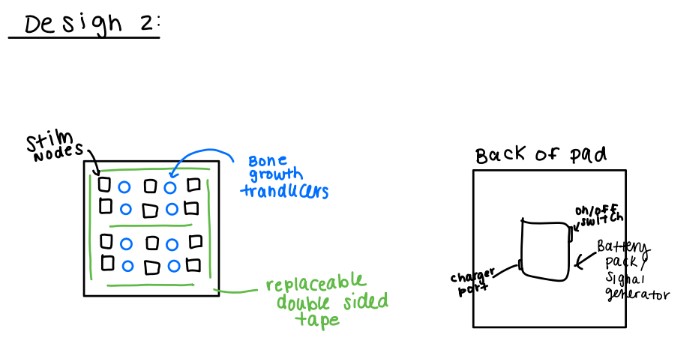 Design 2:
Stim
Nodes
Bone
growth
tranducers
replaceable
double sided
tape
Back of pad
on/off
switch
charger
port
Battery
pack/
signal
generator